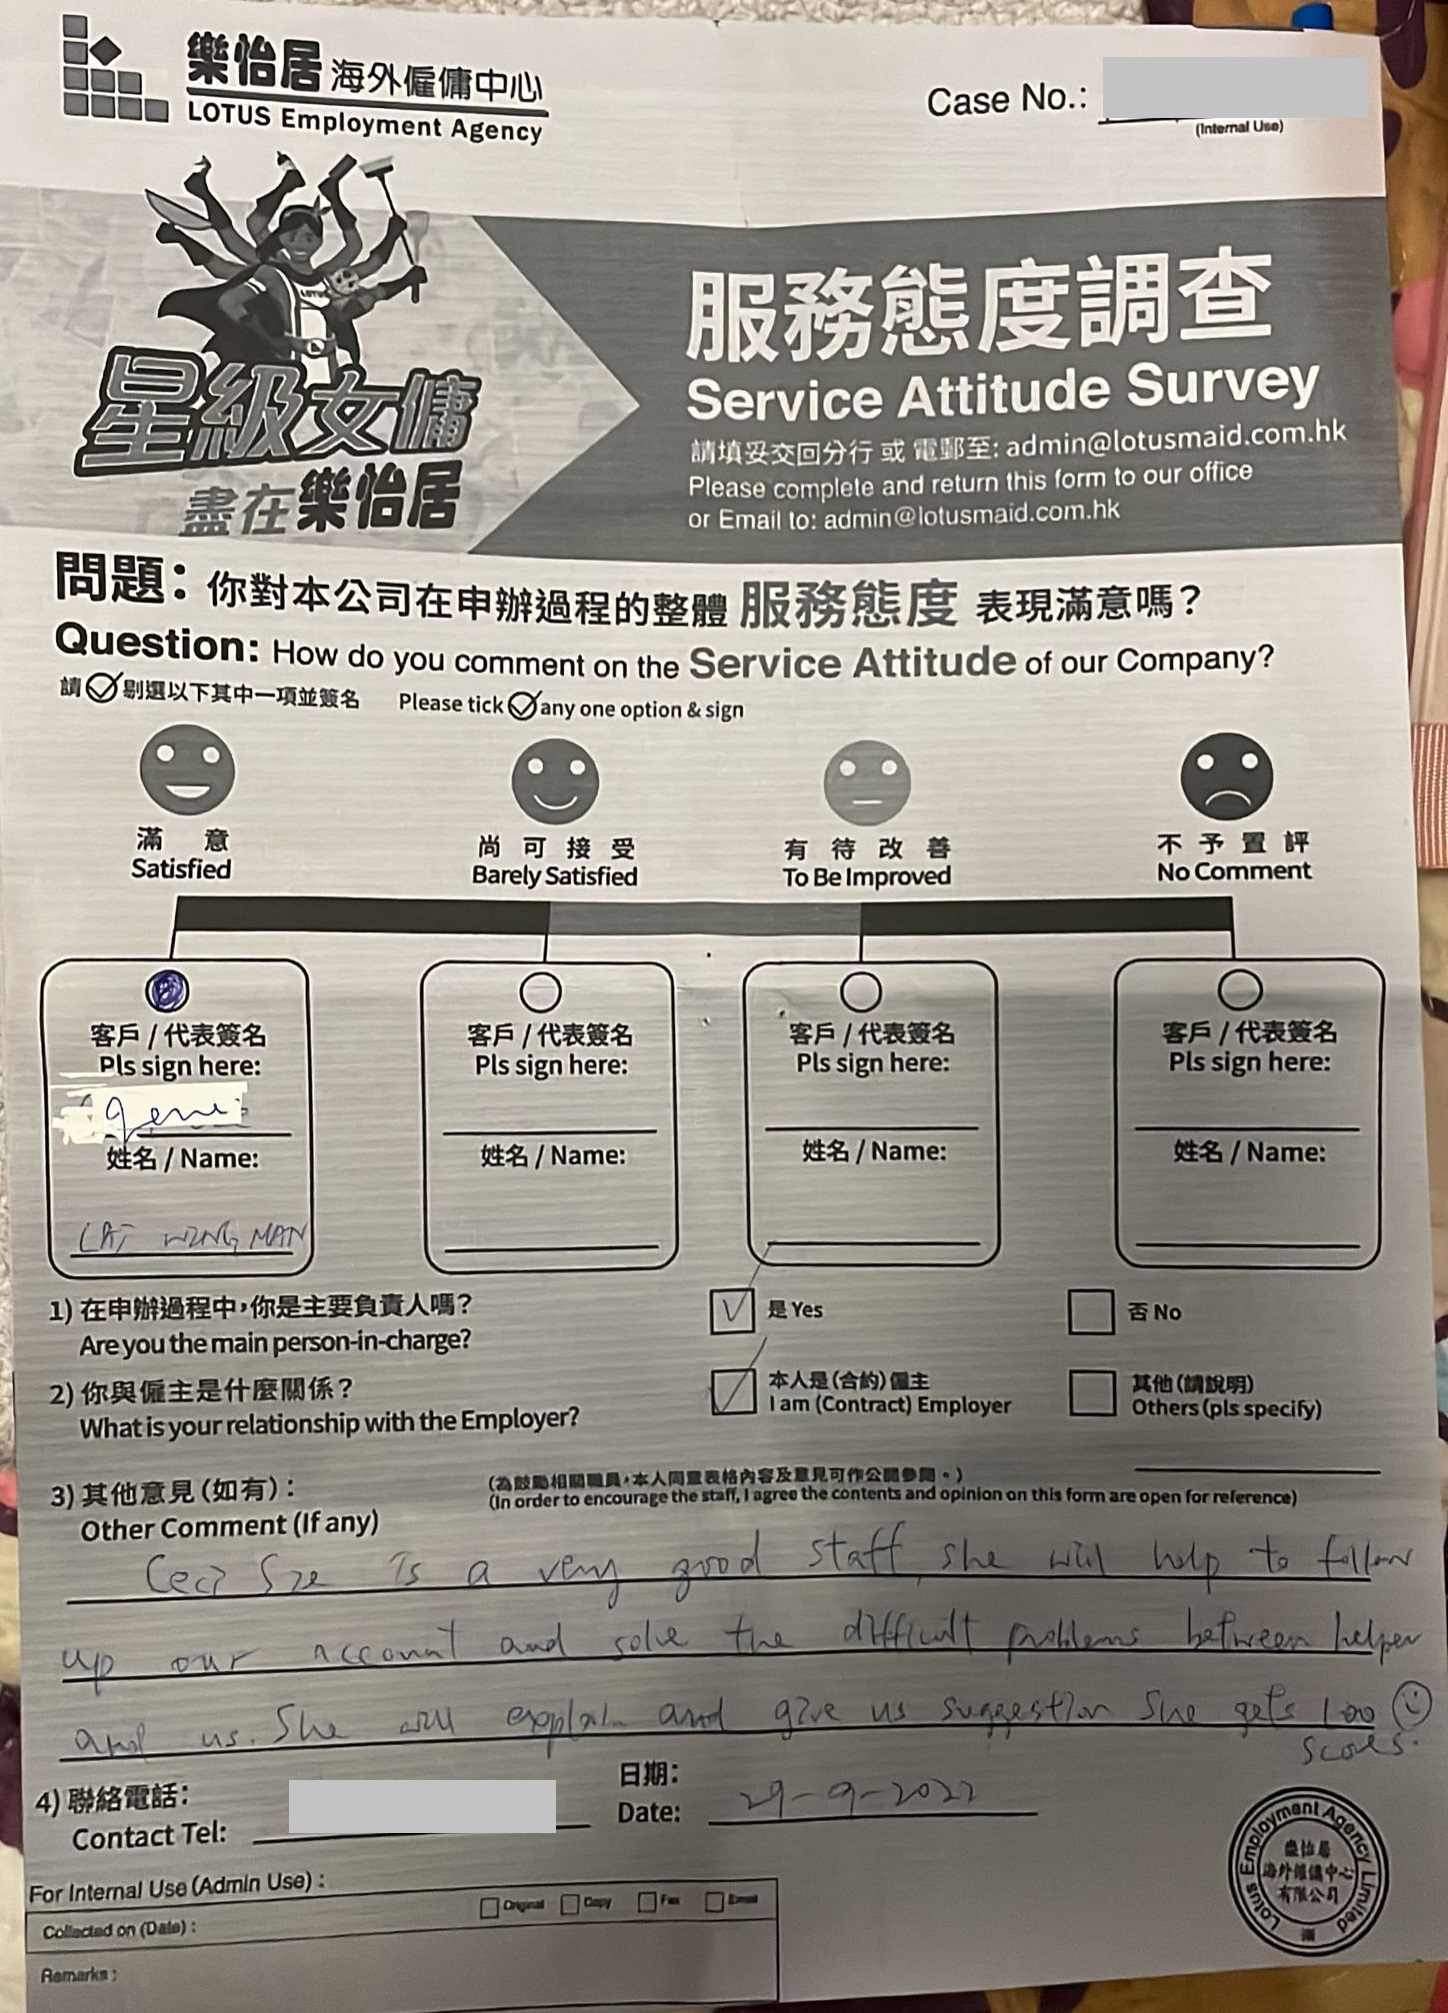 樂怡居 海外僱傭中心
LOTUS Employment Agency
Case No.:
(Internal Use)
LOTUS
星級女傭
盡在樂怡居
服務態度調查
Service Attitude Survey
請填妥交回分行 或 電郵至: admin@lotusmaid.com.hk
Please complete and return this form to our office
or Email to: admin@lotusmaid.com.hk
問題: 你對本公司在申辦過程的整體 服務態度 表現滿意嗎?
Question: How do you comment on the Service Attitude of our Company?
請 剔選以下其中一項並簽名 Please tick any one option & sign
滿 意 尚 可 接 受 有 待 改 善 不 予 置 評
Satisfied Barely Satisfied To Be Improved No Comment
客戶 / 代表簽名 客戶 / 代表簽名 客戶 / 代表簽名 客戶 / 代表簽名
Pls sign here: Pls sign here: Pls sign here: Pls sign here:
姓名 / Name: 姓名 / Name: 姓名 / Name: 姓名 / Name:
LAI WING MAN
1) 在申辦過程中,你是主要負責人嗎? 是 Yes 否 No
Are you the main person-in-charge?
2) 你與僱主是什麼關係? 本人是(合約)僱主 其他(請說明)
What is your relationship with the Employer? I am (Contract) Employer Others (pls specify)
3) 其他意見(如有): (為鼓勵相關職員,本人同意表格內容及意見可作公開參閱。)
Other Comment (If any) (In order to encourage the staff, I agree the contents and opinion on this form are open for reference)
Ceci Sze is a very good staff, she will help to follow
up our account and solve the difficult problems between helper
and us. She will explain and give us suggestion She gets 100
scores.
4) 聯絡電話: 日期:
Contact Tel: Date: 29-9-2022
For Internal Use (Admin Use) :
Original Copy Fax Email
Collected on (Date) :
Remarks :
Lotus Employment Agency Limited
樂怡居
海外僱傭中心
有限公司